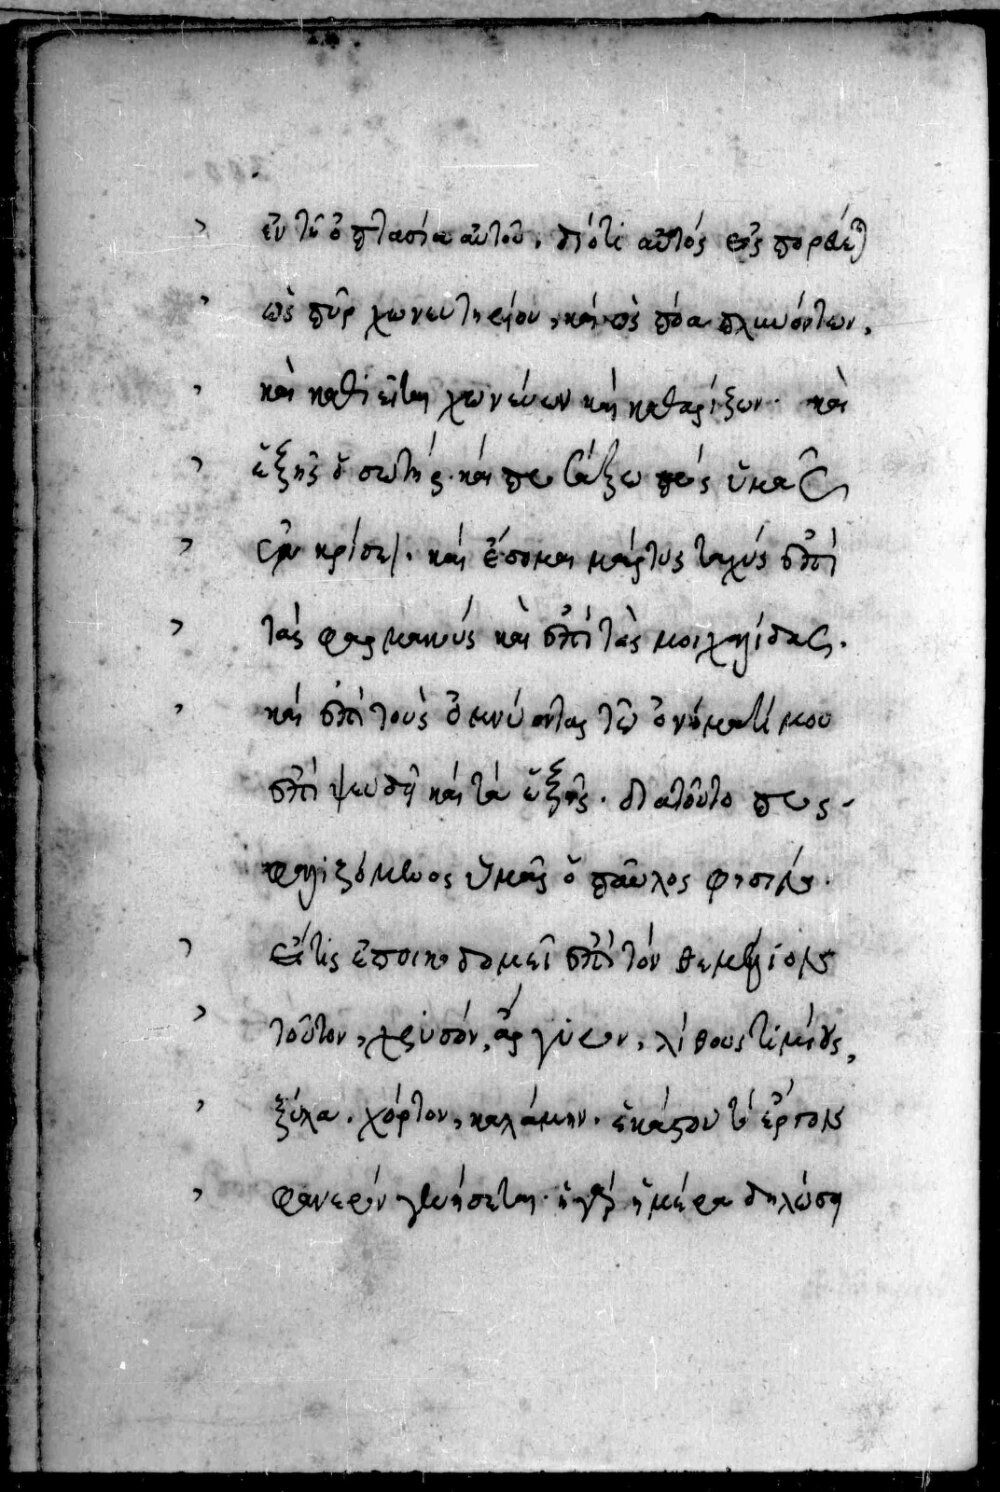 ἐν τῆ ὀπτασία αὐτοῦ. διότι αὐτός εἰσπορεύε
ὡς πῦρ χωνευτηρίου, καὶ ὡς πόα πλυνόντων,
καὶ καθιεῖται χωνεύων καὶ καθαρίζων. καὶ
ἑξῆς ὁ σωτήρ. καὶ προσάξω πρός ὑμᾶς
ἐν κρίσει. καὶ ἔσομαι μάρτυς ταχύς ἐπὶ
τὰς φαρμακούς καὶ ἐπὶ τὰς μοιχαλίδας.
καὶ ἐπὶ τοὺς ὀμνύοντας τῶ ὀνόματί μου
ἐπὶ ψευδῆ καὶ τὰ ἑξῆς. διατοῦτο προς
φαλιζόμενος ὑμᾶς ὁ παῦλος φησίν.
εἴτις ἐποικοδομεῖ ἐπὶ τόν θεμέλιον
τοῦτον, χρυσόν, ἄργυρον, λίθους τιμίους,
ξύλα. χόρτον, καλάμην. ἑκάστου τό ἔργον
φανερόν γενήσεται. ἡ γάρ ἡμέρα δηλώση